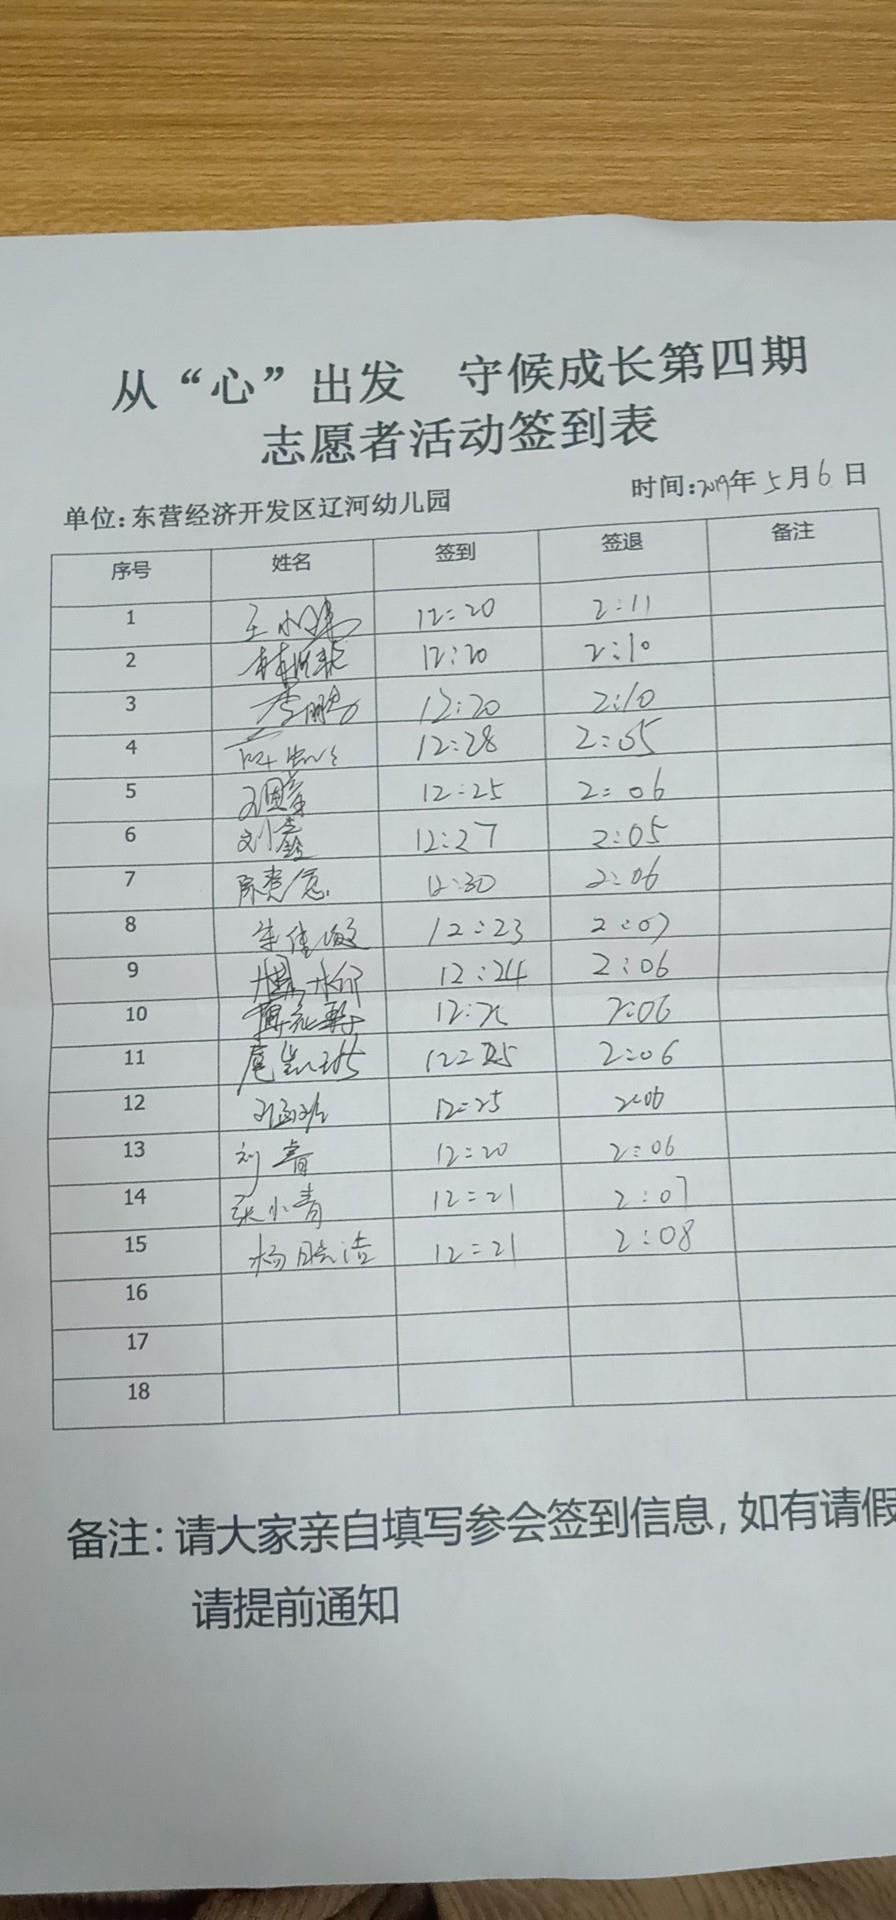 从“心”出发 守候成长第四期
志愿者活动签到表
单位：东营经济开发区辽河幼儿园 时间：2019年5月6日
序号 姓名 签到 签退 备注
1 王小 12:20 2:11
2 12:20 2:10
3 李鹏 12:20 2:10
4 12:28 2:05
5 12:25 2:06
6 刘鑫 12:27 2:05
7 12:30 2:06
8 12:23 2:07
9 12:24 2:06
10 2:06
11 12:25 2:06
12 12:25 2:06
13 刘青 12:20 2:06
14 张小青 12:21 2:07
15 杨晓洁 12:21 2:08
16
17
18
备注：请大家亲自填写参会签到信息，如有请假
请提前通知